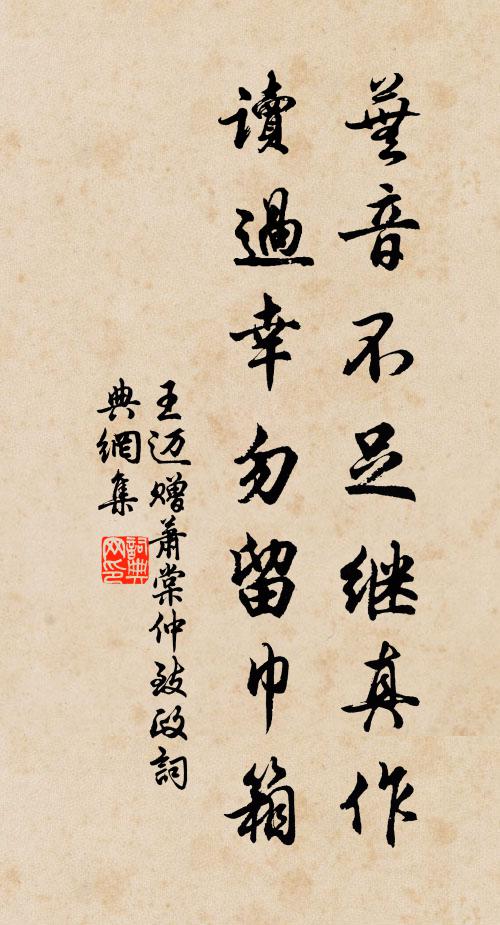 蕪音不足继真作
讀過幸勿留巾箱
王迈赠蕭棠仲致政詞
典網集
詞典
网印